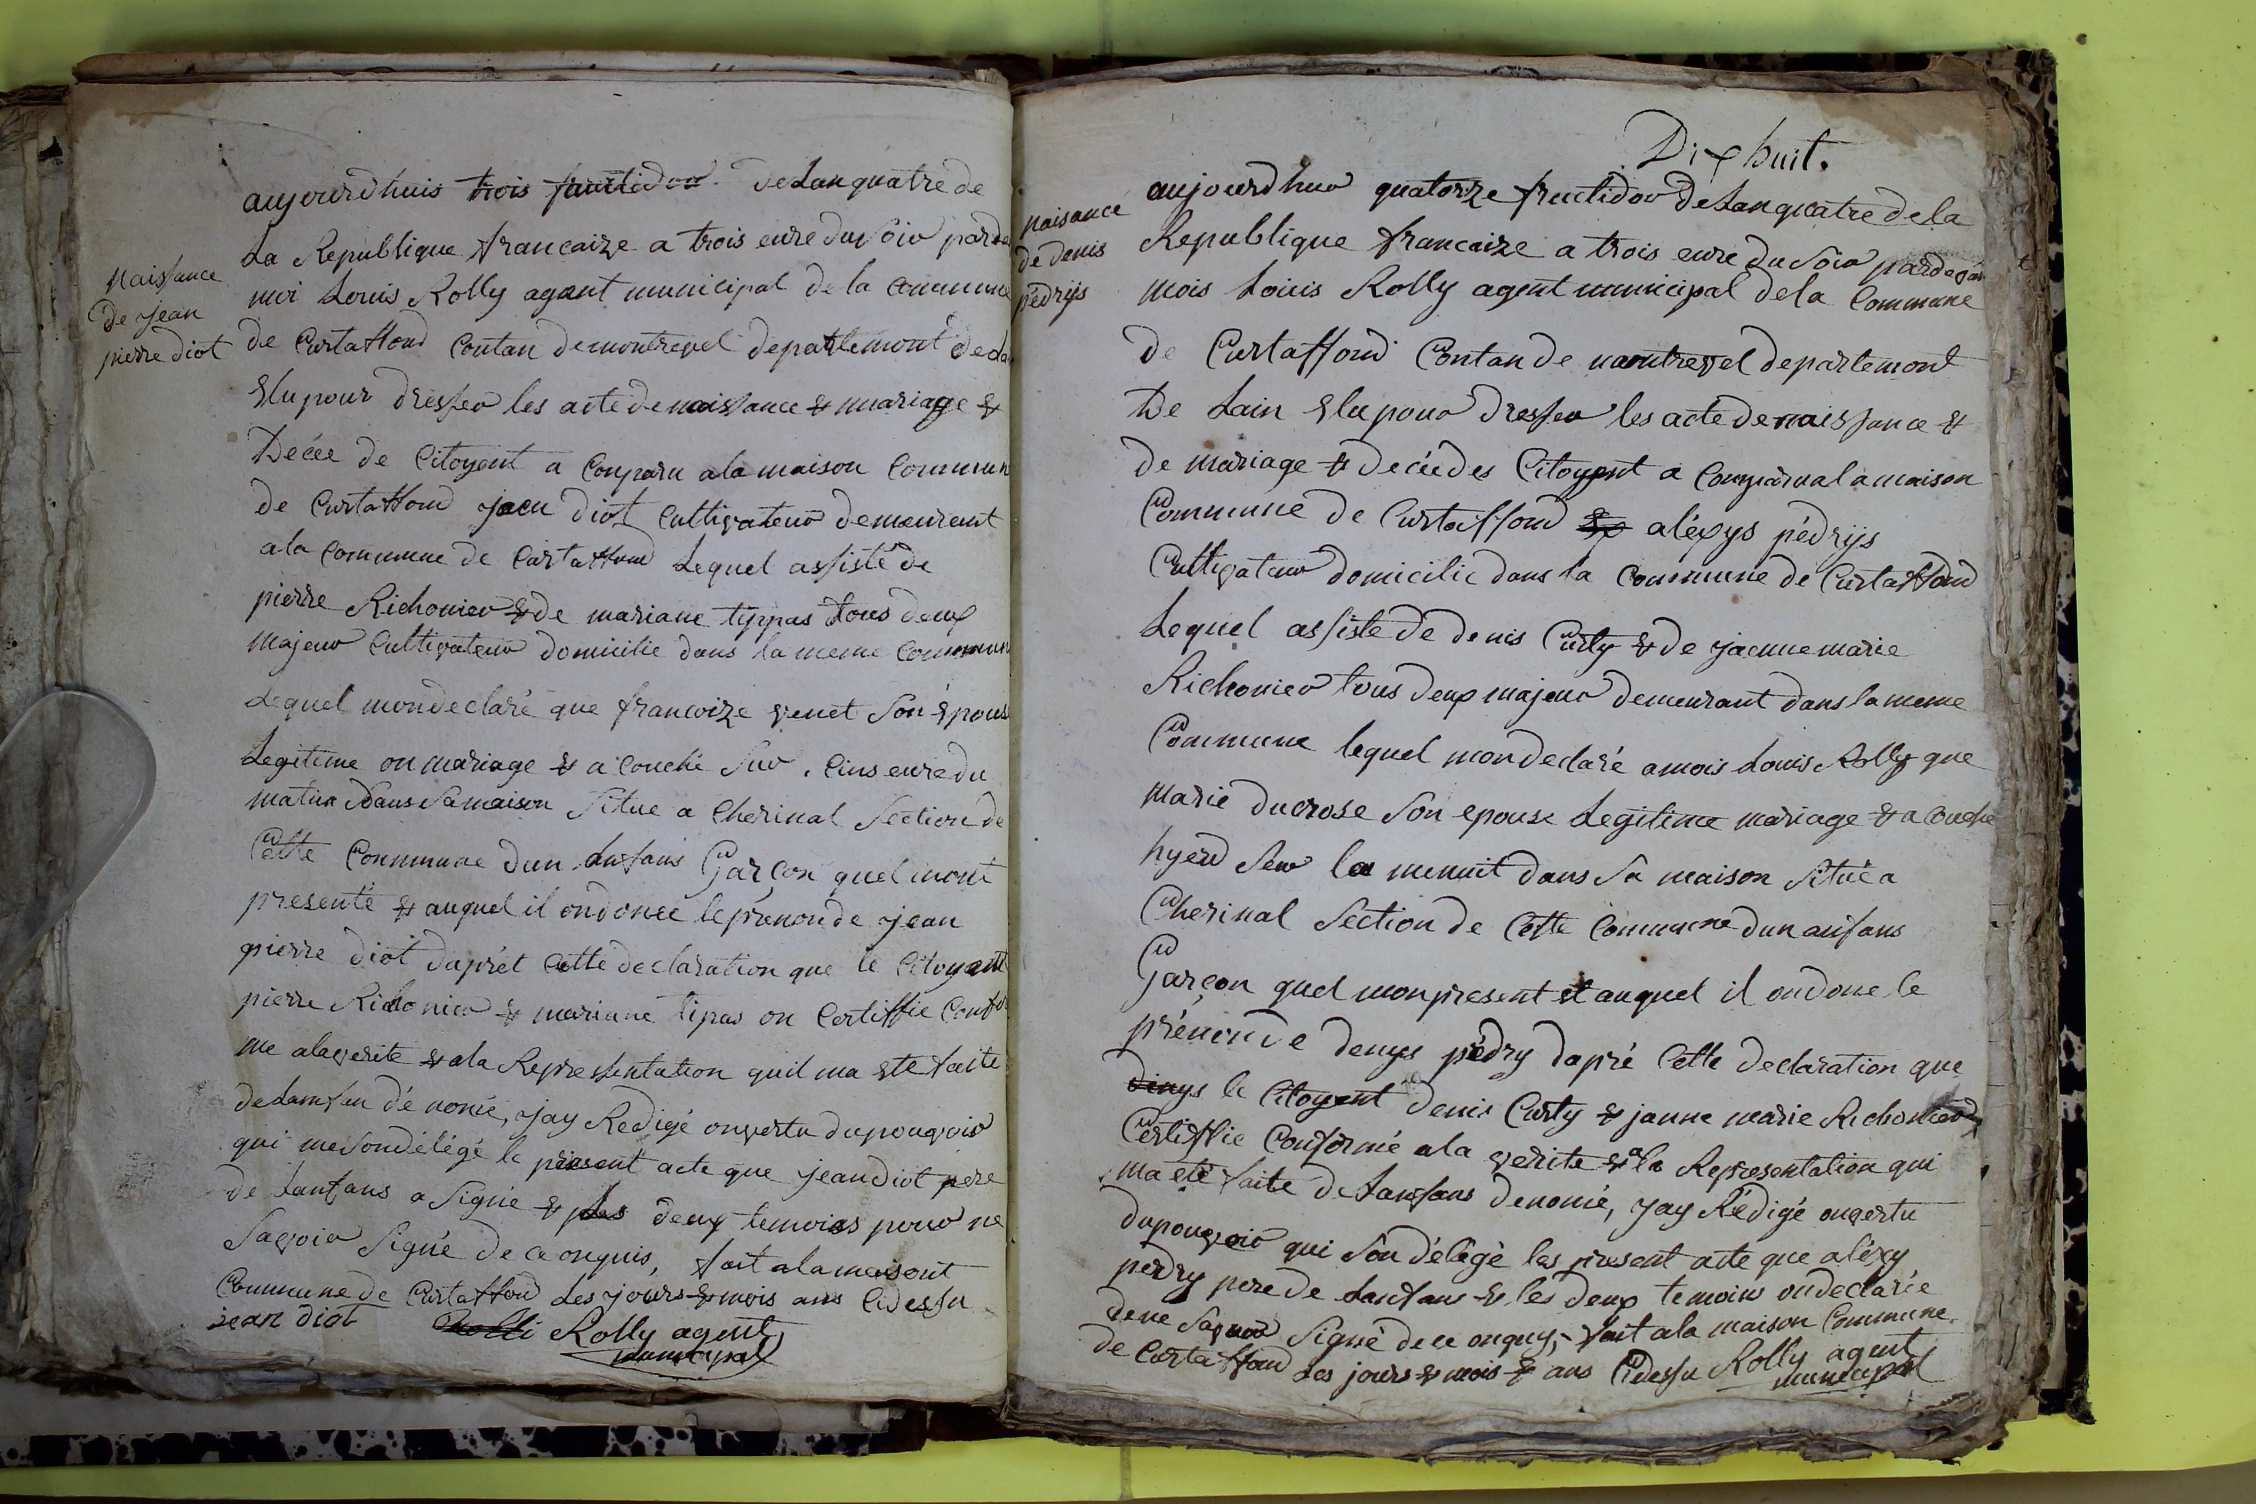 naissance
de jean
pierre diot
aujourdhuis trois fruitidor. de Lan quatre de
La Republique francaize a trois eure du soir parde
moi Louis Rolly agent municipal de la Commune
de Curtaffond Contan de montrevel departement de Lai
Elu pour dresser les acte de naissance & mariage &
Décée de Citoyent a Conparu a la maison Commun
de Curtaffond jaen diot Cultivateur demeurent
a la Commune de Curtaffond Lequel assisté de
pierre Richonier & de mariane tippas tous deux
majeur Cultivateur domicilie dans la meme Commun
Lequel mon declaré que francoize venet Son épous
Legitime on mariage & a Couché Sur. Cins eure du
matin Dans Sa maison Situe a Cherinal Section de
Cette Commune dun Lanfans Garçon quel mont
presenté & auquel il on donée le prenon de jean
pierre diot daprét Cette declaration que le Citoyent
pierre Richonier & mariane tipas on Certiffie Confor
me a la verite & a la Representation quil ma ete faite
de Lamfan dé nomé, jay Redigé on vertu du pouvoir
qui me son délégé le present acte que jean diot pere
de Lanfans a Signé & Les deux temoins pour ne
Savoir Signé de ce onquis, fait a la maisont
Commune de Curtaffond Les jours & mois ans Cidessu
jean diot Rolly agent
municipal
Dix huit.
naisance
de denis
pédrijs
aujourdhuo quatorze fructidor de Lan quatre de la
Republique francaize a trois eure du Soir parde van
mois Louis Rolly agent municipal de la Commune
de Curtaffond Contan de montrevel departement
De Lain Elu pour dresser les acte de naissance &
de mariage & decée des Citoyent a Comparu a la maison
Commune de Curtaiffond aléxys pédrijs
Cultivateur domicilie dans la Commune de Curtaffond
Lequel assiste de denis Curty & de jaenne marie
Richonier tous deux majeur demeurant dans la meme
Commune lequel mon declaré a mois Louis Rolly que
marie ducrose Son epouse Legitime mariage & a Couche
hyerd Seur la menuit dans Sa maison Situé a
Cherinal Section de Cette Commune dun anfans
Garçon quel mon present et auquel il on done le
prénon de denys pédry dapré Cette declaration que
dinys le Citoyent denis Curty & janne marie Richonier
Certiffie Conformé a la verite & a la Representation qui
ma eté faite de Lanfans denomé, jay Rédigé on vertu
du pouvoir qui Son délégé les present acte que aléxy
pedry pere de Lanfans & les deux temoins on declarée
de ne Savoir Signé de ce onquy, fait a la maison Commune
de Curtaffond Les jours & mois & ans Cidessu Rolly agent
municipal